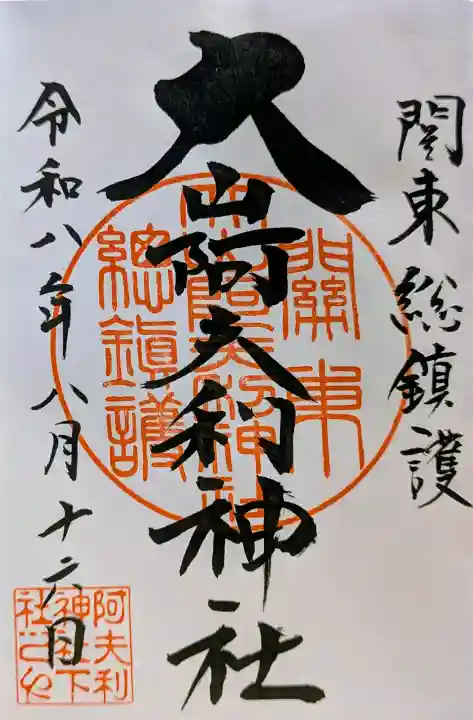 関東総鎮護
大山阿夫利神社
令和八年八月十六日
關東
大山阿夫利神社
總鎮護
阿夫利
神社下
社